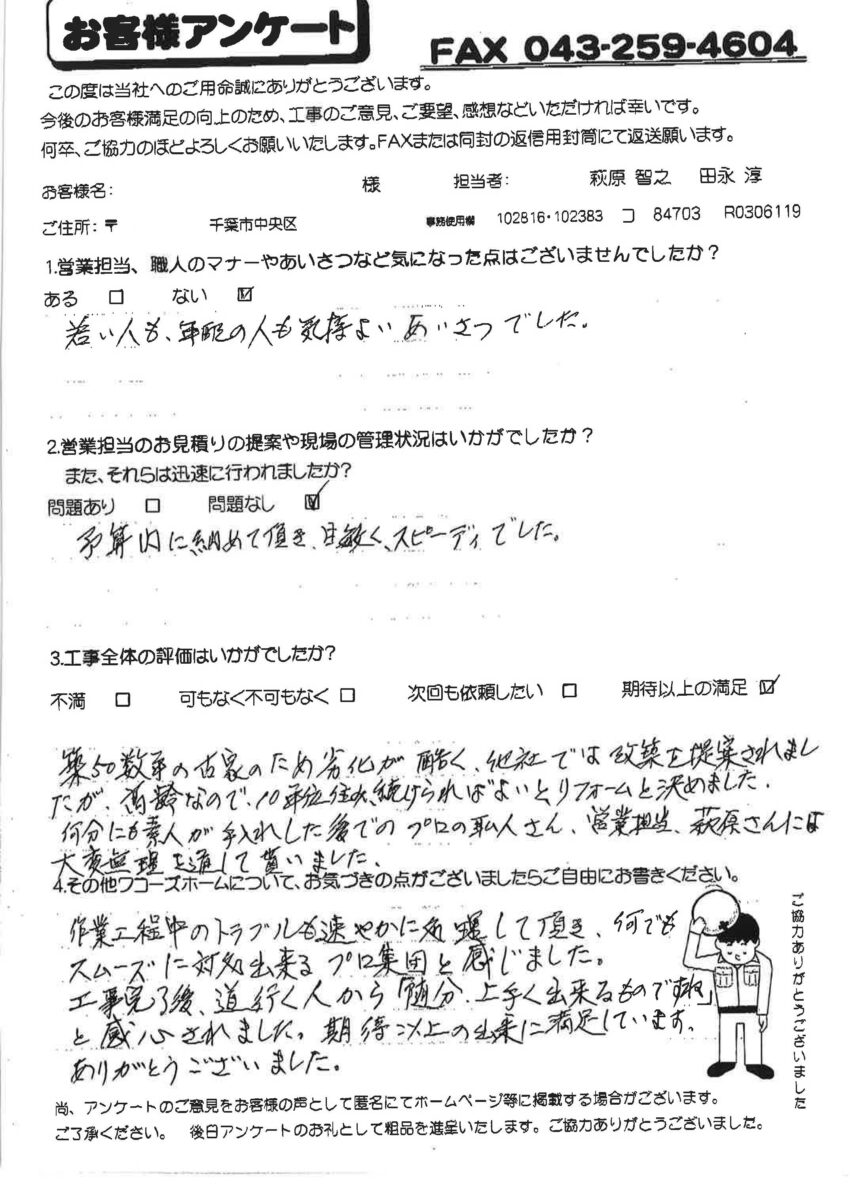 お客様アンケート
FAX 043-259-4604
この度は当社へのご用命誠にありがとうございます。
今後のお客様満足の向上のため、工事のご意見、ご要望、感想などいただければ幸いです。
何卒、ご協力のほどよろしくお願いいたします。FAXまたは同封の返信用封筒にて返送願います。
お客様名: 様 担当者: 萩原 智之 田永 淳
ご住所:〒 千葉市中央区 事務使用欄 102816・102383 コ 84703 R0306119
1.営業担当、職人のマナーやあいさつなど気になった点はございませんでしたか?
ある □ ない ☑
若い人も、年配の人も気持よいあいさつでした。
2.営業担当のお見積りの提案や現場の管理状況はいかがでしたか?
また、それらは迅速に行われましたか?
問題あり □ 問題なし ☑
予算内に納めて頂き、目敏く、スピーディでした。
3.工事全体の評価はいかがでしたか?
不満 □ 可もなく不可もなく □ 次回も依頼したい □ 期待以上の満足 ☑
築50数年の古家のため劣化が酷く、他社では改築を提案されまし
たが、高齢なので、10年位住み続けられればよいとリフォームと決めました。
何分にも素人が手入れした後でのプロの職人さん、営業担当、萩原さんには
大変無理を通して貰いました。
4.その他ワコーズホームについて、お気づきの点がございましたらご自由にお書きください。
作業工程中のトラブルも速やかに処理して頂き、何でも
スムーズに対処出来るプロ集団と感じました。
工事完了後、道行く人から「随分、上手く出来るものですね」
と感心されました。期待以上の出来に満足しています。
ありがとうございました。
ご協力ありがとうございました
尚、アンケートのご意見をお客様の声として匿名にてホームページ等に掲載する場合がございます。
ご了承ください。 後日アンケートのお礼として粗品を進呈いたします。ご協力ありがとうございました。